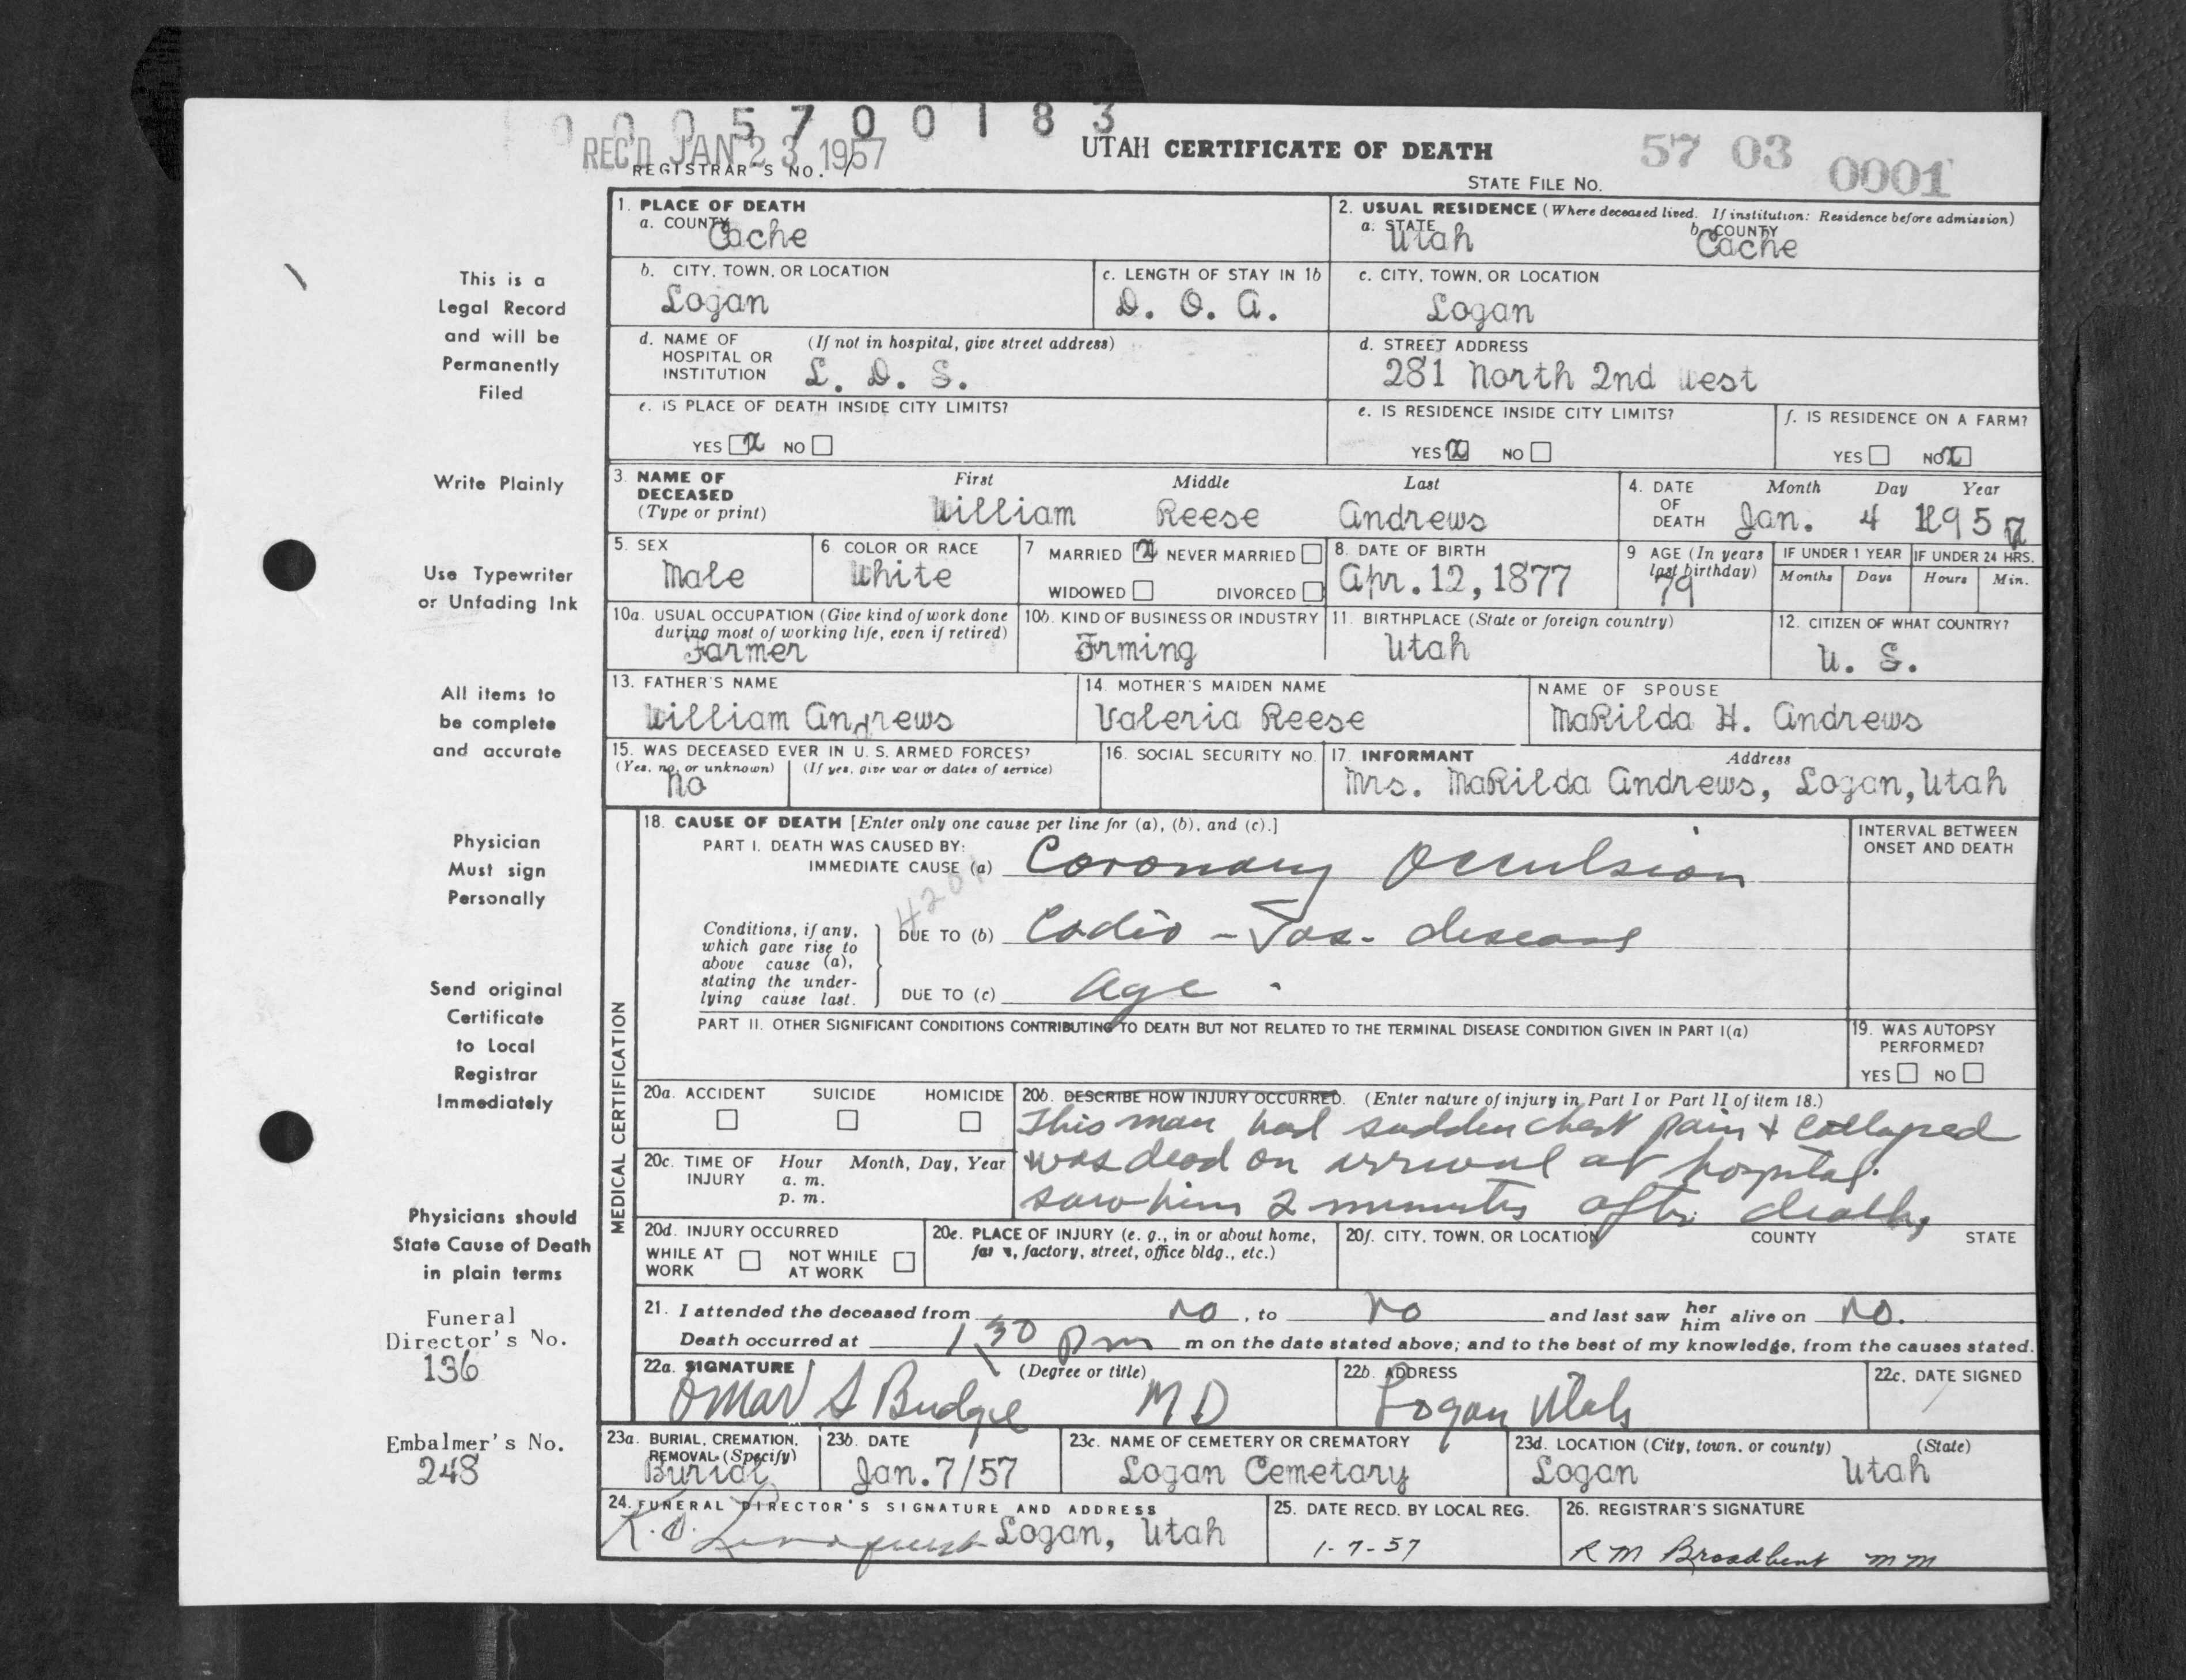 0005700183
REC'D JAN 23 1957
REGISTRAR'S NO. 1
UTAH CERTIFICATE OF DEATH
57 03 0001
STATE FILE NO.
This is a
Legal Record
and will be
Permanently
Filed
Write Plainly
Use Typewriter
or Unfading Ink
All items to
be complete
and accurate
Physician
Must sign
Personally
Send original
Certificate
to Local
Registrar
Immediately
Physicians should
State Cause of Death
in plain terms
Funeral
Director's No.
136
Embalmer's No.
248
1. PLACE OF DEATH
a. COUNTY
Cache
2. USUAL RESIDENCE (Where deceased lived. If institution: Residence before admission)
a. STATE b. COUNTY
Utah Cache
b. CITY, TOWN, OR LOCATION
Logan
c. LENGTH OF STAY IN 1b
D. O. A.
c. CITY, TOWN, OR LOCATION
Logan
d. NAME OF (If not in hospital, give street address)
HOSPITAL OR
INSTITUTION L. D. S.
d. STREET ADDRESS
281 North 2nd West
e. IS PLACE OF DEATH INSIDE CITY LIMITS?
YES x NO
e. IS RESIDENCE INSIDE CITY LIMITS?
YES x NO
f. IS RESIDENCE ON A FARM?
YES NO x
3. NAME OF First Middle Last
DECEASED
(Type or print) William Reese Andrews
4. DATE Month Day Year
OF
DEATH Jan. 4 1957
5. SEX
Male
6. COLOR OR RACE
White
7 MARRIED x NEVER MARRIED
WIDOWED DIVORCED
8. DATE OF BIRTH
Apr. 12, 1877
9 AGE (In years
last birthday)
79
IF UNDER 1 YEAR IF UNDER 24 HRS.
Months Days Hours Min.
10a. USUAL OCCUPATION (Give kind of work done
during most of working life, even if retired)
Farmer
10b. KIND OF BUSINESS OR INDUSTRY
Frming
11. BIRTHPLACE (State or foreign country)
Utah
12. CITIZEN OF WHAT COUNTRY?
U. S.
13. FATHER'S NAME
William Andrews
14. MOTHER'S MAIDEN NAME
Valeria Reese
NAME OF SPOUSE
MaRilda H. Andrews
15. WAS DECEASED EVER IN U. S. ARMED FORCES?
(Yes, no, or unknown) (If yes, give war or dates of service)
No
16. SOCIAL SECURITY NO.
17. INFORMANT Address
Mrs. MaRilda Andrews, Logan, Utah
MEDICAL CERTIFICATION
18. CAUSE OF DEATH [Enter only one cause per line for (a), (b), and (c).]
PART I. DEATH WAS CAUSED BY:
IMMEDIATE CAUSE (a) Coronary Occulsion
INTERVAL BETWEEN
ONSET AND DEATH
4201
Conditions, if any,
which gave rise to
above cause (a),
stating the under-
lying cause last.
DUE TO (b) Cadio - Vas. disease
DUE TO (c) age.
PART II. OTHER SIGNIFICANT CONDITIONS CONTRIBUTING TO DEATH BUT NOT RELATED TO THE TERMINAL DISEASE CONDITION GIVEN IN PART I(a)
19. WAS AUTOPSY
PERFORMED?
YES NO
20a. ACCIDENT SUICIDE HOMICIDE
20b. DESCRIBE HOW INJURY OCCURRED. (Enter nature of injury in Part I or Part II of item 18.)
This man had sudden chest pain & collapsed
was dead on arrival at hospital.
saw him 2 minutes after death,
20c. TIME OF Hour Month, Day, Year
INJURY a. m.
p. m.
20d. INJURY OCCURRED
WHILE AT NOT WHILE
WORK AT WORK
20e. PLACE OF INJURY (e. g., in or about home,
farm, factory, street, office bldg., etc.)
20f. CITY, TOWN, OR LOCATION COUNTY STATE
21. I attended the deceased from no, to no and last saw her him alive on no.
Death occurred at 1 30 pm m on the date stated above; and to the best of my knowledge, from the causes stated.
22a. SIGNATURE (Degree or title)
Omar S Budge MD
22b. ADDRESS
Logan Utah
22c. DATE SIGNED
23a. BURIAL, CREMATION,
REMOVAL (Specify)
Burial
23b. DATE
Jan. 7/57
23c. NAME OF CEMETERY OR CREMATORY
Logan Cemetary
23d. LOCATION (City, town, or county) (State)
Logan Utah
24. FUNERAL DIRECTOR'S SIGNATURE AND ADDRESS
K. O. Lindquist Logan, Utah
25. DATE RECD. BY LOCAL REG.
1-7-57
26. REGISTRAR'S SIGNATURE
R M Broadbent mm